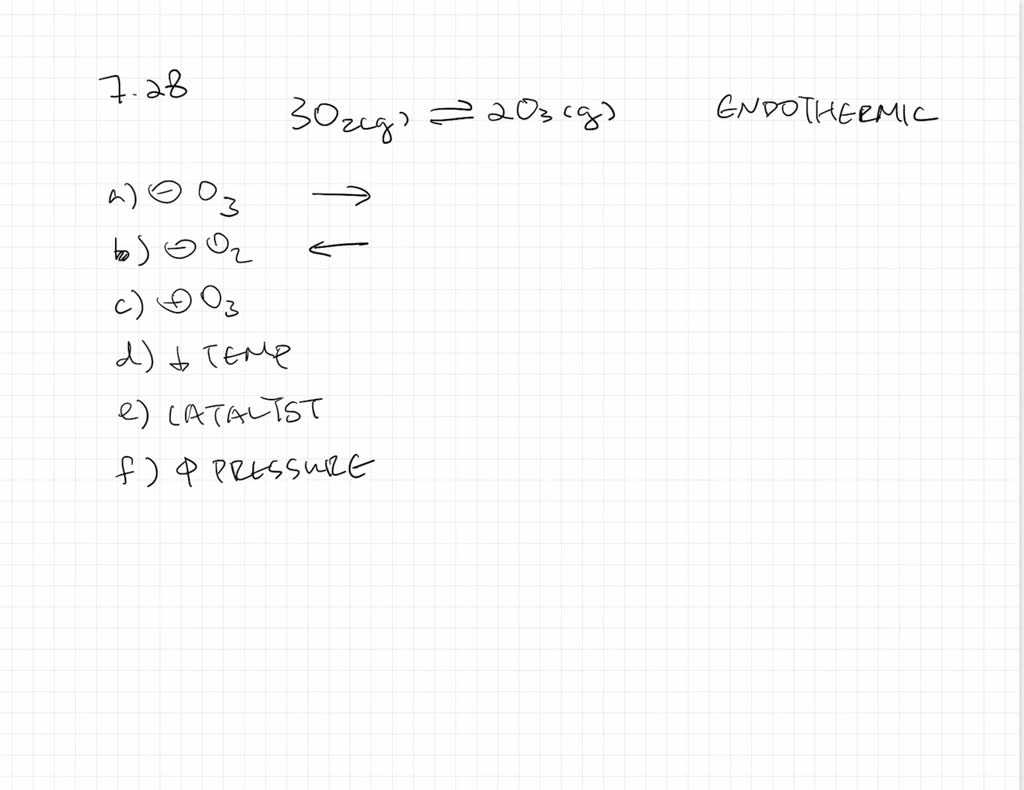 7.28
3O₂(g) ⇌ 2O₃(g) ENDOTHERMIC
a) ⊖ O₃ →
b) ⊖ O₂ ←
c) ⊕ O₃
d) ↓ TEMP
e) CATALIST
f) ↑ PRESSURE